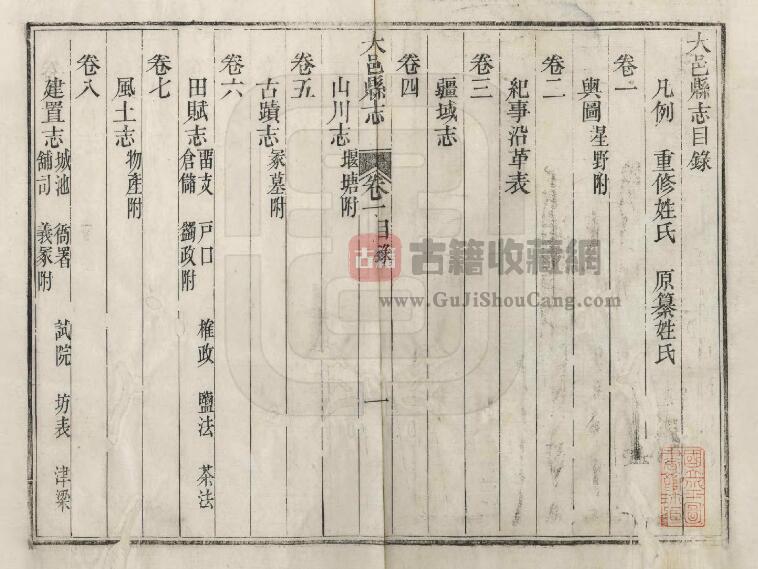 大邑縣志目錄
凡例 重修姓氏 原纂姓氏
卷一
輿圖 星野附
卷二
紀事沿革表
卷三
疆域志
卷四
大邑縣志 卷一目錄 一
山川志 堰塘附
卷五
古蹟志 冢墓附
卷六
田賦志 畱支 戶口 榷政 鹽法 茶法
倉儲 蠲政附
卷七
風土志 物產附
卷八
建置志 城池 衙署 試院 坊表 津梁
舖司 義冢附
古籍 古籍收藏網
www.GuJiShouCang.com